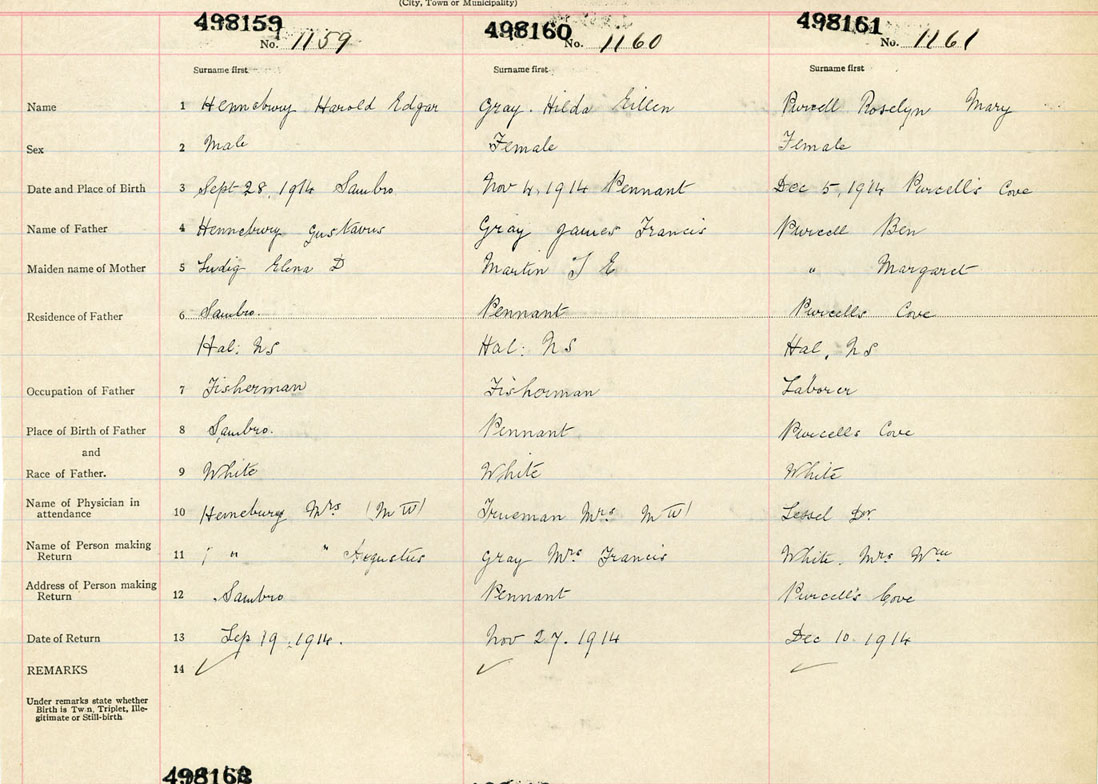 (City, Town or Municipality)
498159 498160 498161
No. 1159 No. 1160 No. 1161
Surname first Surname first Surname first
Name 1 Hennebury Harold Edgar Gray. Hilda Eillen Purcell Roselyn Mary
Sex 2 Male Female Female
Date and Place of Birth 3 Sept 28, 1914 Sambro Nov 4, 1914 Pennant Dec 5, 1914 Purcell's Cove
Name of Father 4 Hennebury Gustavus Gray James Francis Purcell Ben
Maiden name of Mother 5 Elena D Martin " Margaret
Residence of Father 6 Sambro. Pennant Purcells Cove
Hal: NS Hal: NS Hal, NS
Occupation of Father 7 Fisherman Fisherman Laborer
Place of Birth of Father 8 Sambro. Pennant Purcells Cove
and
Race of Father. 9 White White White
Name of Physician in
attendance 10 Henebury Mrs (M W) Trueman Mrs M W) Dr
Name of Person making
Return 11 " " Augustus Gray Mrs Francis White. Mrs Wm
Address of Person making
Return 12 Sambro Pennant Purcell's Cove
Date of Return 13 Sep 19, 1914. Nov 27. 1914 Dec 10. 1914
REMARKS 14 ✓ ✓ ✓
Under remarks state whether
Birth is Twin, Triplet, Ille-
gitimate or Still-birth
498162